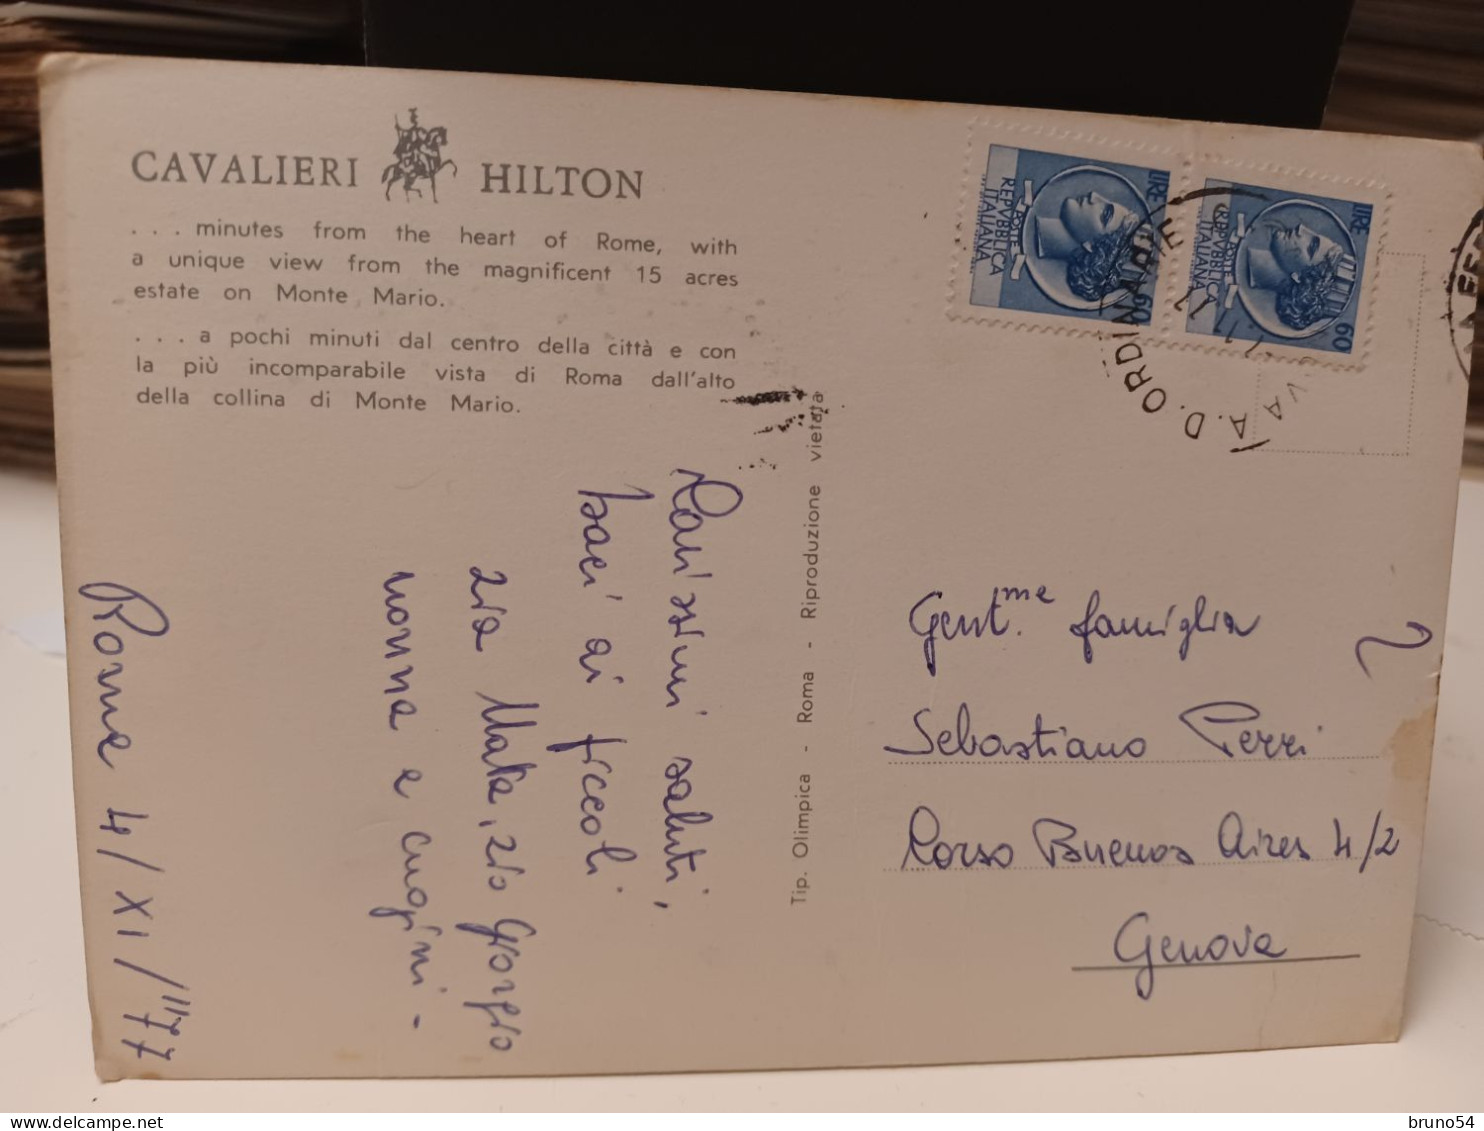 CAVALIERI HILTON
. . . minutes from the heart of Rome, with
a unique view from the magnificent 15 acres
estate on Monte Mario.
. . . a pochi minuti dal centro della città e con
la più incomparabile vista di Roma dall'alto
della collina di Monte Mario.
Carissimi saluti,
baci ai piccoli
zia Mata, zio Giorgio
nonna e cugini -
Roma 4/XI/77
Tip. Olimpica - Roma - Riproduzione vietata
LIRE 60
POSTE
REPVBBLICA
ITALIANA
LIRE 60
POSTE
REPVBBLICA
ITALIANA
A.D. ORDINARIE
Gent.me famiglia
Sebastiano Perri
Corso Buenos Aires 4/2
Genova
bruno54